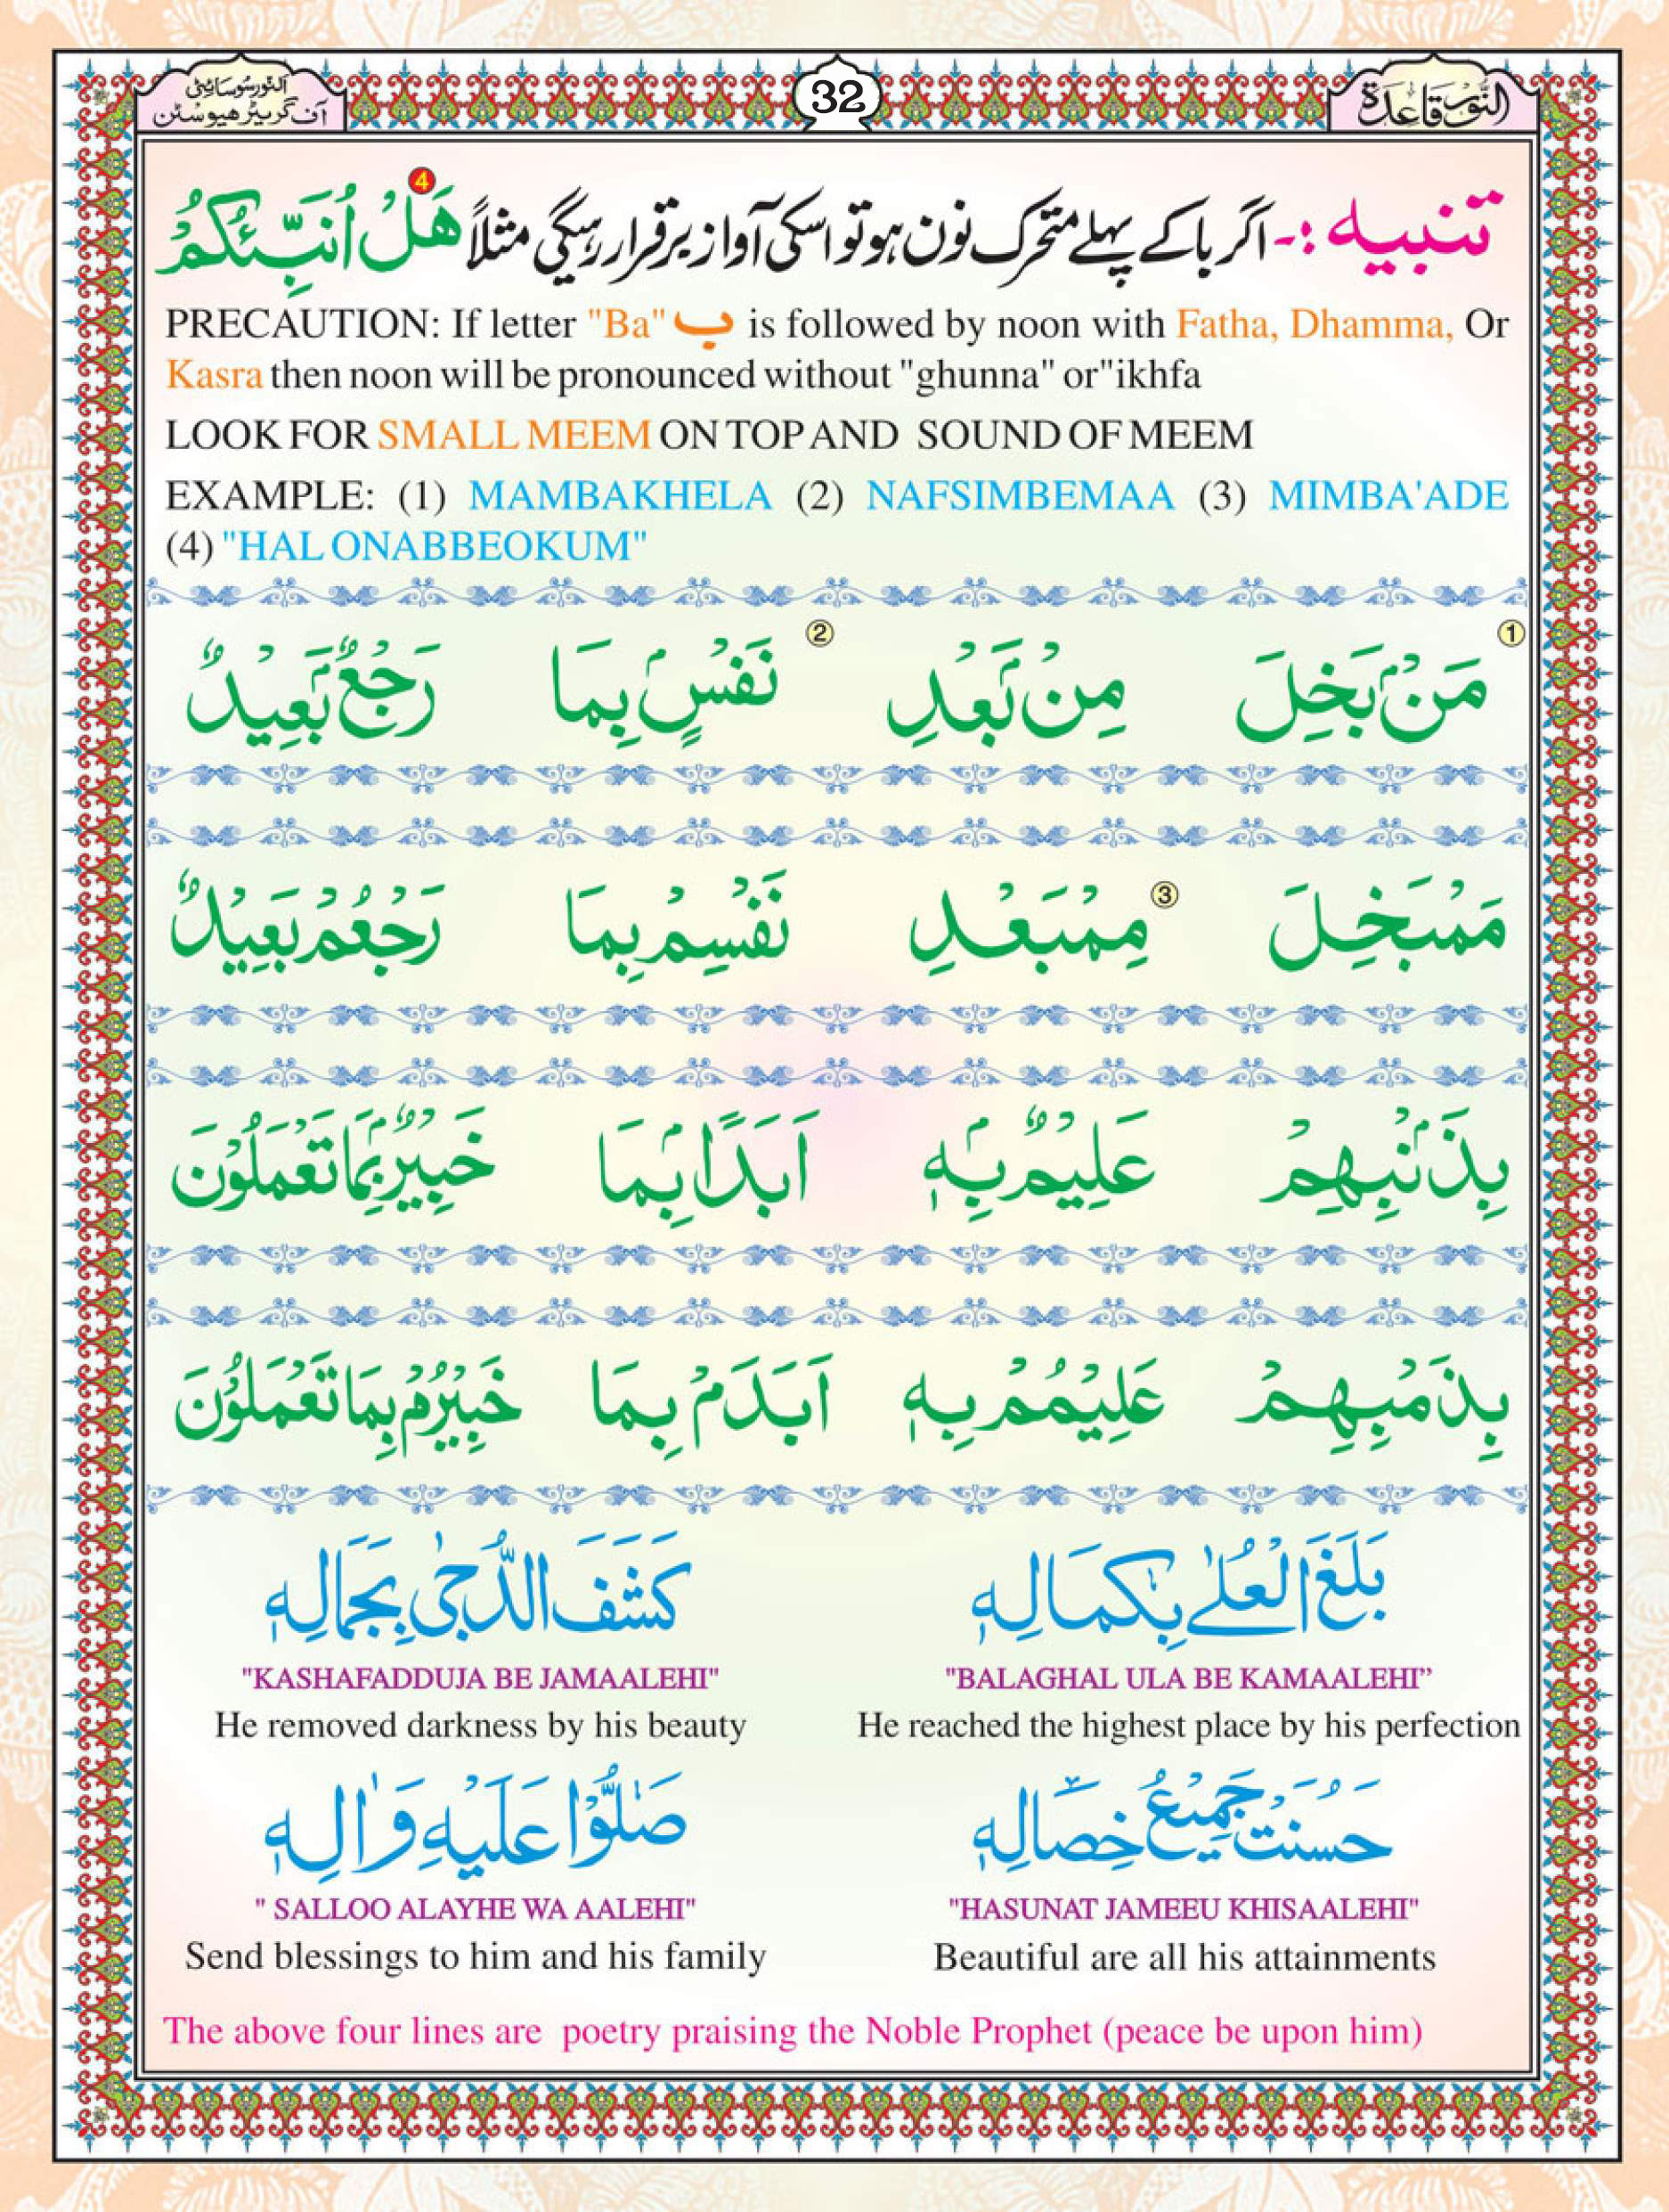 النُّور قَاعِدَة
32
اَلنّور سُوسائِٹی
آف گریٹر ھیوسٹن
تنبیہ :- اگر با کے پہلے متحرک نون ہو تو اسکی آواز برقرار رہیگی مثلاً هَلْ اُنَبِّئُكُمْ 4
PRECAUTION: If letter "Ba" ب is followed by noon with Fatha, Dhamma, Or
Kasra then noon will be pronounced without "ghunna" or"ikhfa
LOOK FOR SMALL MEEM ON TOP AND SOUND OF MEEM
EXAMPLE: (1) MAMBAKHELA (2) NAFSIMBEMAA (3) MIMBA'ADE
(4) "HAL ONABBEOKUM"
1 مَنْۢ بَخِلَ مِنْۢ بَعْدِ 2 نَفْسٍۭ بِمَا رَجْعٌۢ بَعِيْدٌ
مَمْبَخِلَ 3 مِمْبَعْدِ نَفْسِمْ بِمَا رَجْعُمْ بَعِيْدٌ
بِذَنْۢبِهِمْ عَلِيْمٌۢ بِهٖ اَبَدًۢا بِمَا خَبِيْرٌۢ بِمَا تَعْمَلُوْنَ
بِذَمْبِهِمْ عَلِيْمُمْ بِهٖ اَبَدَمْ بِمَا خَبِيْرُمْ بِمَا تَعْمَلُوْنَ
بَلَغَ الْعُلٰے بِكَمَالِهٖ كَشَفَ الدُّجٰى بِجَمَالِهٖ
"BALAGHAL ULA BE KAMAALEHI” "KASHAFADDUJA BE JAMAALEHI"
He reached the highest place by his perfection He removed darkness by his beauty
حَسُنَتْ جَمِيْعُ خِصَالِهٖ صَلُّوْا عَلَيْهِ وَاٰلِهٖ
"HASUNAT JAMEEU KHISAALEHI" " SALLOO ALAYHE WA AALEHI"
Beautiful are all his attainments Send blessings to him and his family
The above four lines are poetry praising the Noble Prophet (peace be upon him)